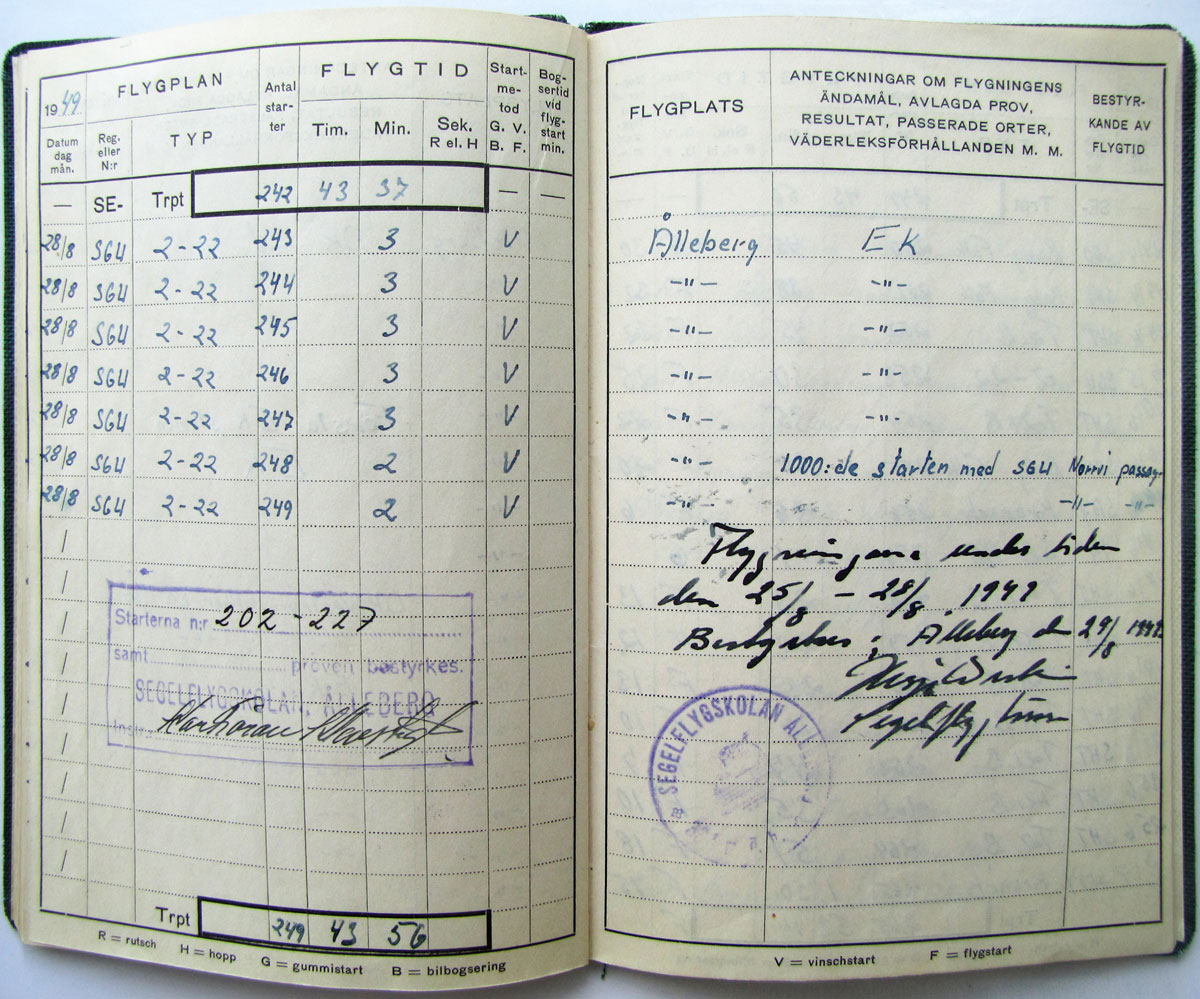 1949
FLYGPLAN
FLYGTID
Antal star- ter
Start- me- tod G. V. B. F.
Bog- sertid vid flyg- start min.
Datum dag mån.
Reg. eller N:r
TYP
Tim.
Min.
Sek. R el. H
— SE- Trpt 242 43 37 — —
28/8 SGU 2-22 243 3 V
28/8 SGU 2-22 244 3 V
28/8 SGU 2-22 245 3 V
28/8 SGU 2-22 246 3 V
28/8 SGU 2-22 247 3 V
28/8 SGU 2-22 248 2 V
28/8 SGU 2-22 249 2 V
/
/
/
/
/
/
/
/
Starterna n:r 202 - 227
samt proven bestyrkes.
SEGELFLYGSKOLAN, ÅLLEBERG
Trpt 249 43 56
R = rutsch H = hopp G = gummistart B = bilbogsering
FLYGPLATS
ANTECKNINGAR OM FLYGNINGENS
ÄNDAMÅL, AVLAGDA PROV,
RESULTAT, PASSERADE ORTER,
VÄDERLEKSFÖRHÅLLANDEN M. M.
BESTYR-
KANDE AV
FLYGTID
Ålleberg EK
-"- -"-
-"- -"-
-"- -"-
-"- -"-
-"- 1000:de starten med SGU Norrvi passag.
-"- -"- -"-
Flygningarna under tiden
den 25/8 - 28/8 1949
Bestyrkes; Ålleberg den 29/8 1949
SEGELFLYGSKOLAN ÅLLEBERG
V = vinschstart F = flygstart